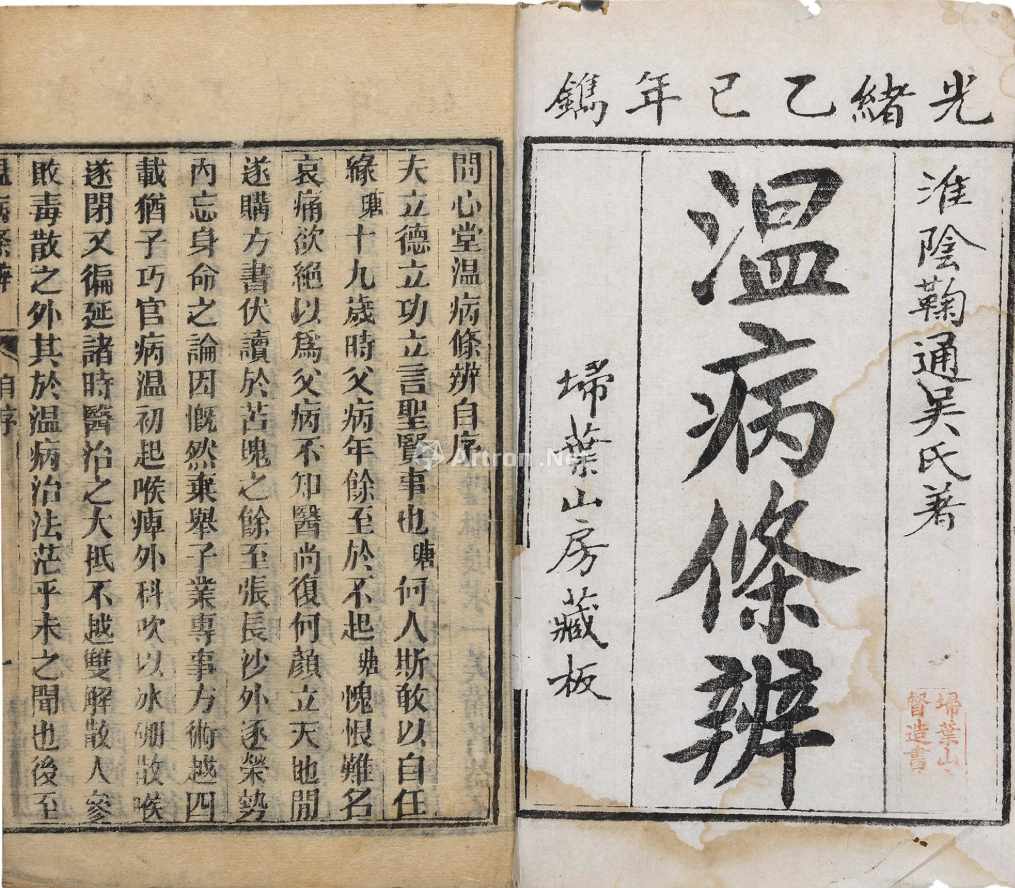 光緒乙巳年鐫
淮陰鞠通吳氏著
温病條辨
埽葉山房藏板
埽葉山
督造書
問心堂温病條辨自序
夫立德立功立言聖賢事也瑭何人斯敢以自任
緣瑭十九歲時父病年餘至於不起瑭愧恨難名
哀痛欲絕以爲父病不知醫尚復何顏立天地間
遂購方書伏讀於苫塊之餘至張長沙外逐榮勢
內忘身命之論因慨然棄舉子業專事方術越四
載猶子巧官病温初起喉痺外科吹以冰硼散喉
遂閉又徧延諸時醫治之大抵不越雙解散人參
敗毒散之外其於温病治法茫乎未之聞也後至
温病條辨
自序
一
Artron.Net